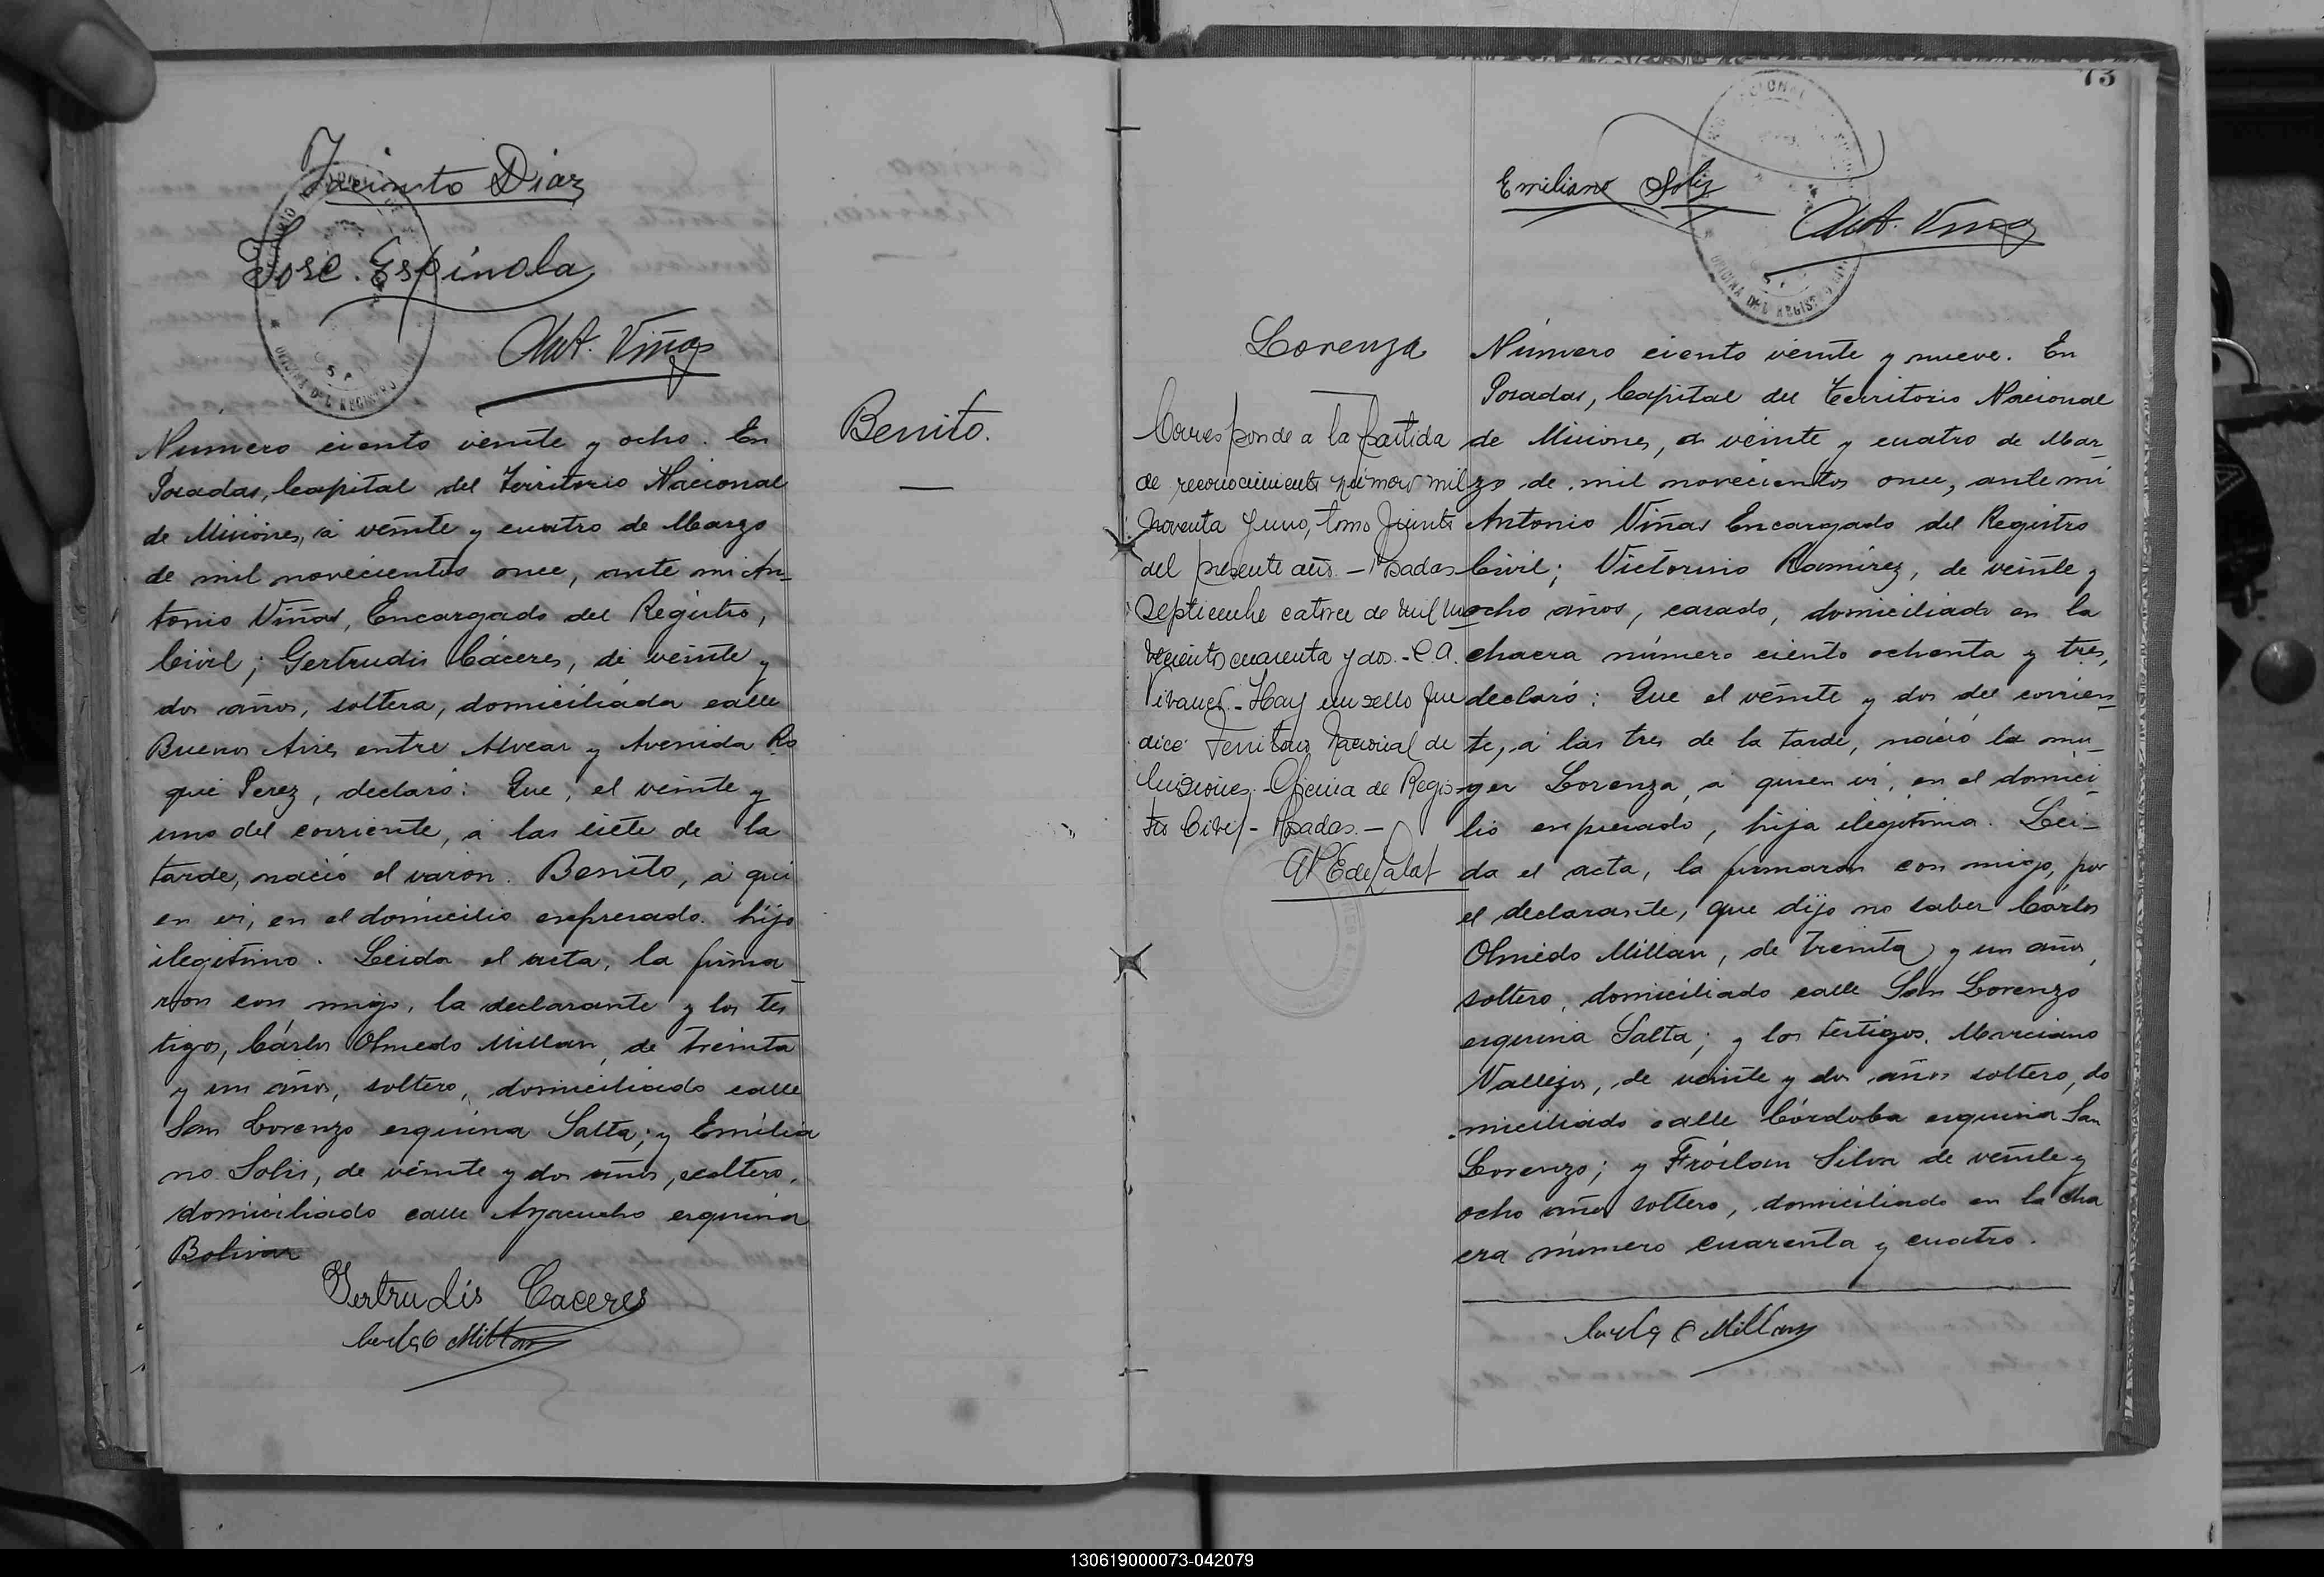 Jacinto Diaz
José Espínola
Ant. Viñas
Número ciento veinte y ocho. En
Posadas, Capital del Territorio Nacional
de Misiones, á veinte y cuatro de Marzo
de mil novecientos once, ante mi An-
tonio Viñas, Encargado del Registro,
Civil; Gertrudis Cáceres, de veinte y
dos años, soltera, domiciliada calle
Buenos Aires entre Alvear y Avenida Ro
que Perez, declaró: Que, el veinte y
uno del corriente, á las siete de la
tarde, nació el varon. Benito, á qui
en vi, en el domicilio expresado. hijo
ilegítimo. Leida el acta, la firma-
ron con migo, la declarante y los tes
tigos, Cárlos Olmedo Millan, de treinta
y un años, soltero, domiciliado calle
San Lorenzo esquina Salta; y Emilia
no Solis, de veinte y dos años, soltero,
domiciliado calle Ayacucho esquina
Bolivar
Gertrudis Caceres
Carlos O Millan
Benito.
73
Emiliano Solis
Ant. Viñas
OFICINA DEL REGISTRO
Lorenza
Corresponde a la partida
de reconocimiento número mil
noventa y uno, tomo quinto
del presente año. - Posadas
Septiembre catorce de mil no
vecientos cuarenta y dos. - C.A.
Vivanco. - Hay un sello que
dice Territorio Nacional de
Misiones - Oficina de Regis-
tro Civil - Posadas. -
Número ciento veinte y nueve. En
Posadas, Capital del Territorio Nacional
de Misiones, á veinte y cuatro de Mar-
zo de mil novecientos once, ante mi
Antonio Viñas Encargado del Registro
Civil; Victorino Ramirez, de veinte y
ocho años, casado, domiciliado en la
chacra número ciento ochenta y tres,
declaró: Que el veinte y dos del corrien-
te, á las tres de la tarde, nació la mu-
ger Lorenza, á quien vi, en el domici-
lio expresado, hija ilegítima. Lei-
da el acta, la firmaron con migo, por
el declarante, que dijo no saber Cárlos
Olmedo Millan, de treinta y un años,
soltero, domiciliado calle San Lorenzo
esquina Salta; y los testigos. Marciano
Vallejos, de veinte y dos años soltero, do
miciliado calle Córdoba esquina San
Lorenzo; y Fróilan Silva de veinte y
ocho años soltero, domiciliado en la cha
cra número cuarenta y cuatro.
Carlos O Millan
130619000073-042079